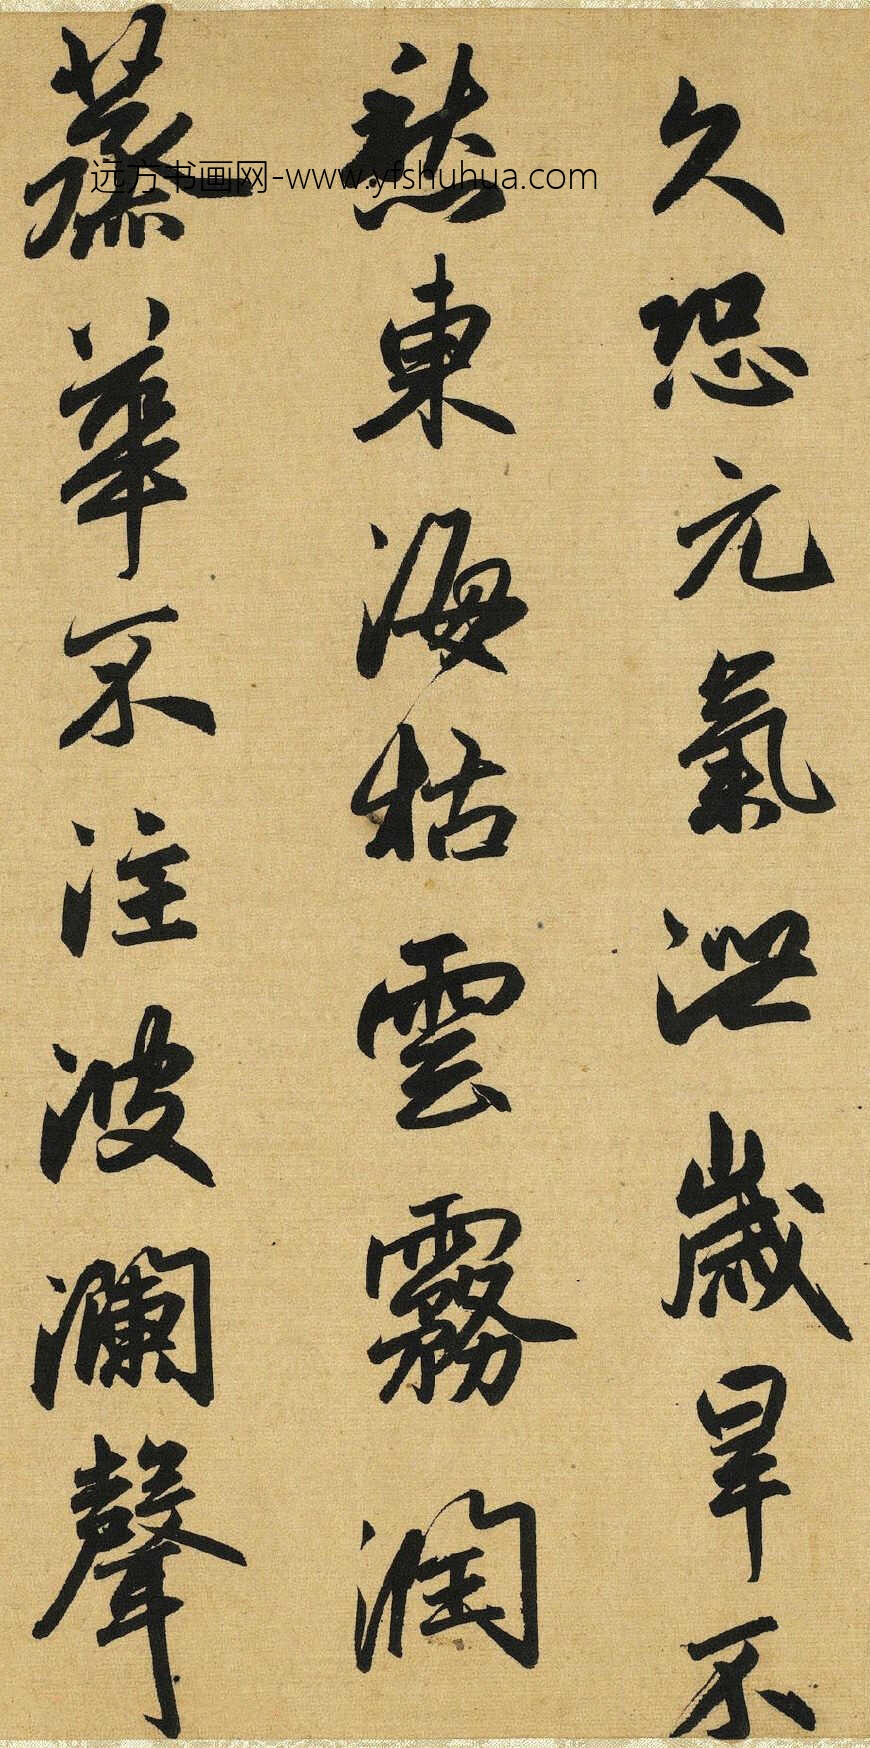 久恐元氣泄歲旱不
愁東海枯雲霧潤
蒸華不注波瀾聲
远方书画网-www.yfshuhua.com